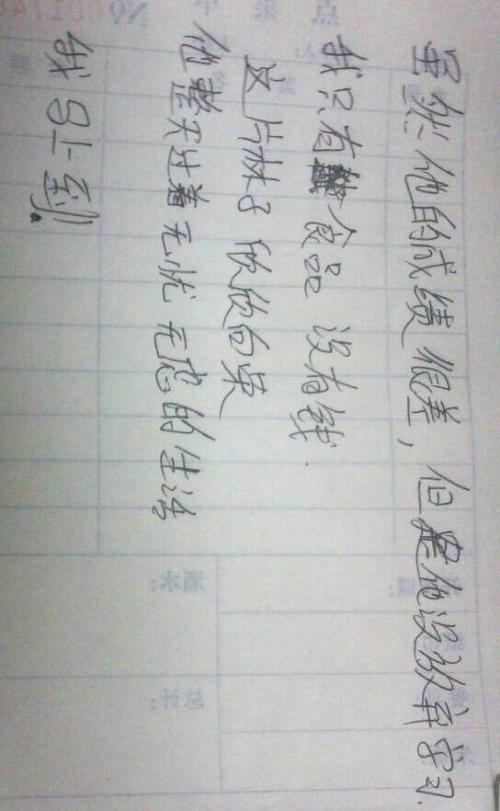 虽然他的成绩很差，但是他没放弃学习
我只有食品 没有钱.
这片林子 欣欣向荣
他整天过着无忧无虑的生活
我马上到。
点菜单 No
酒水:
总计: